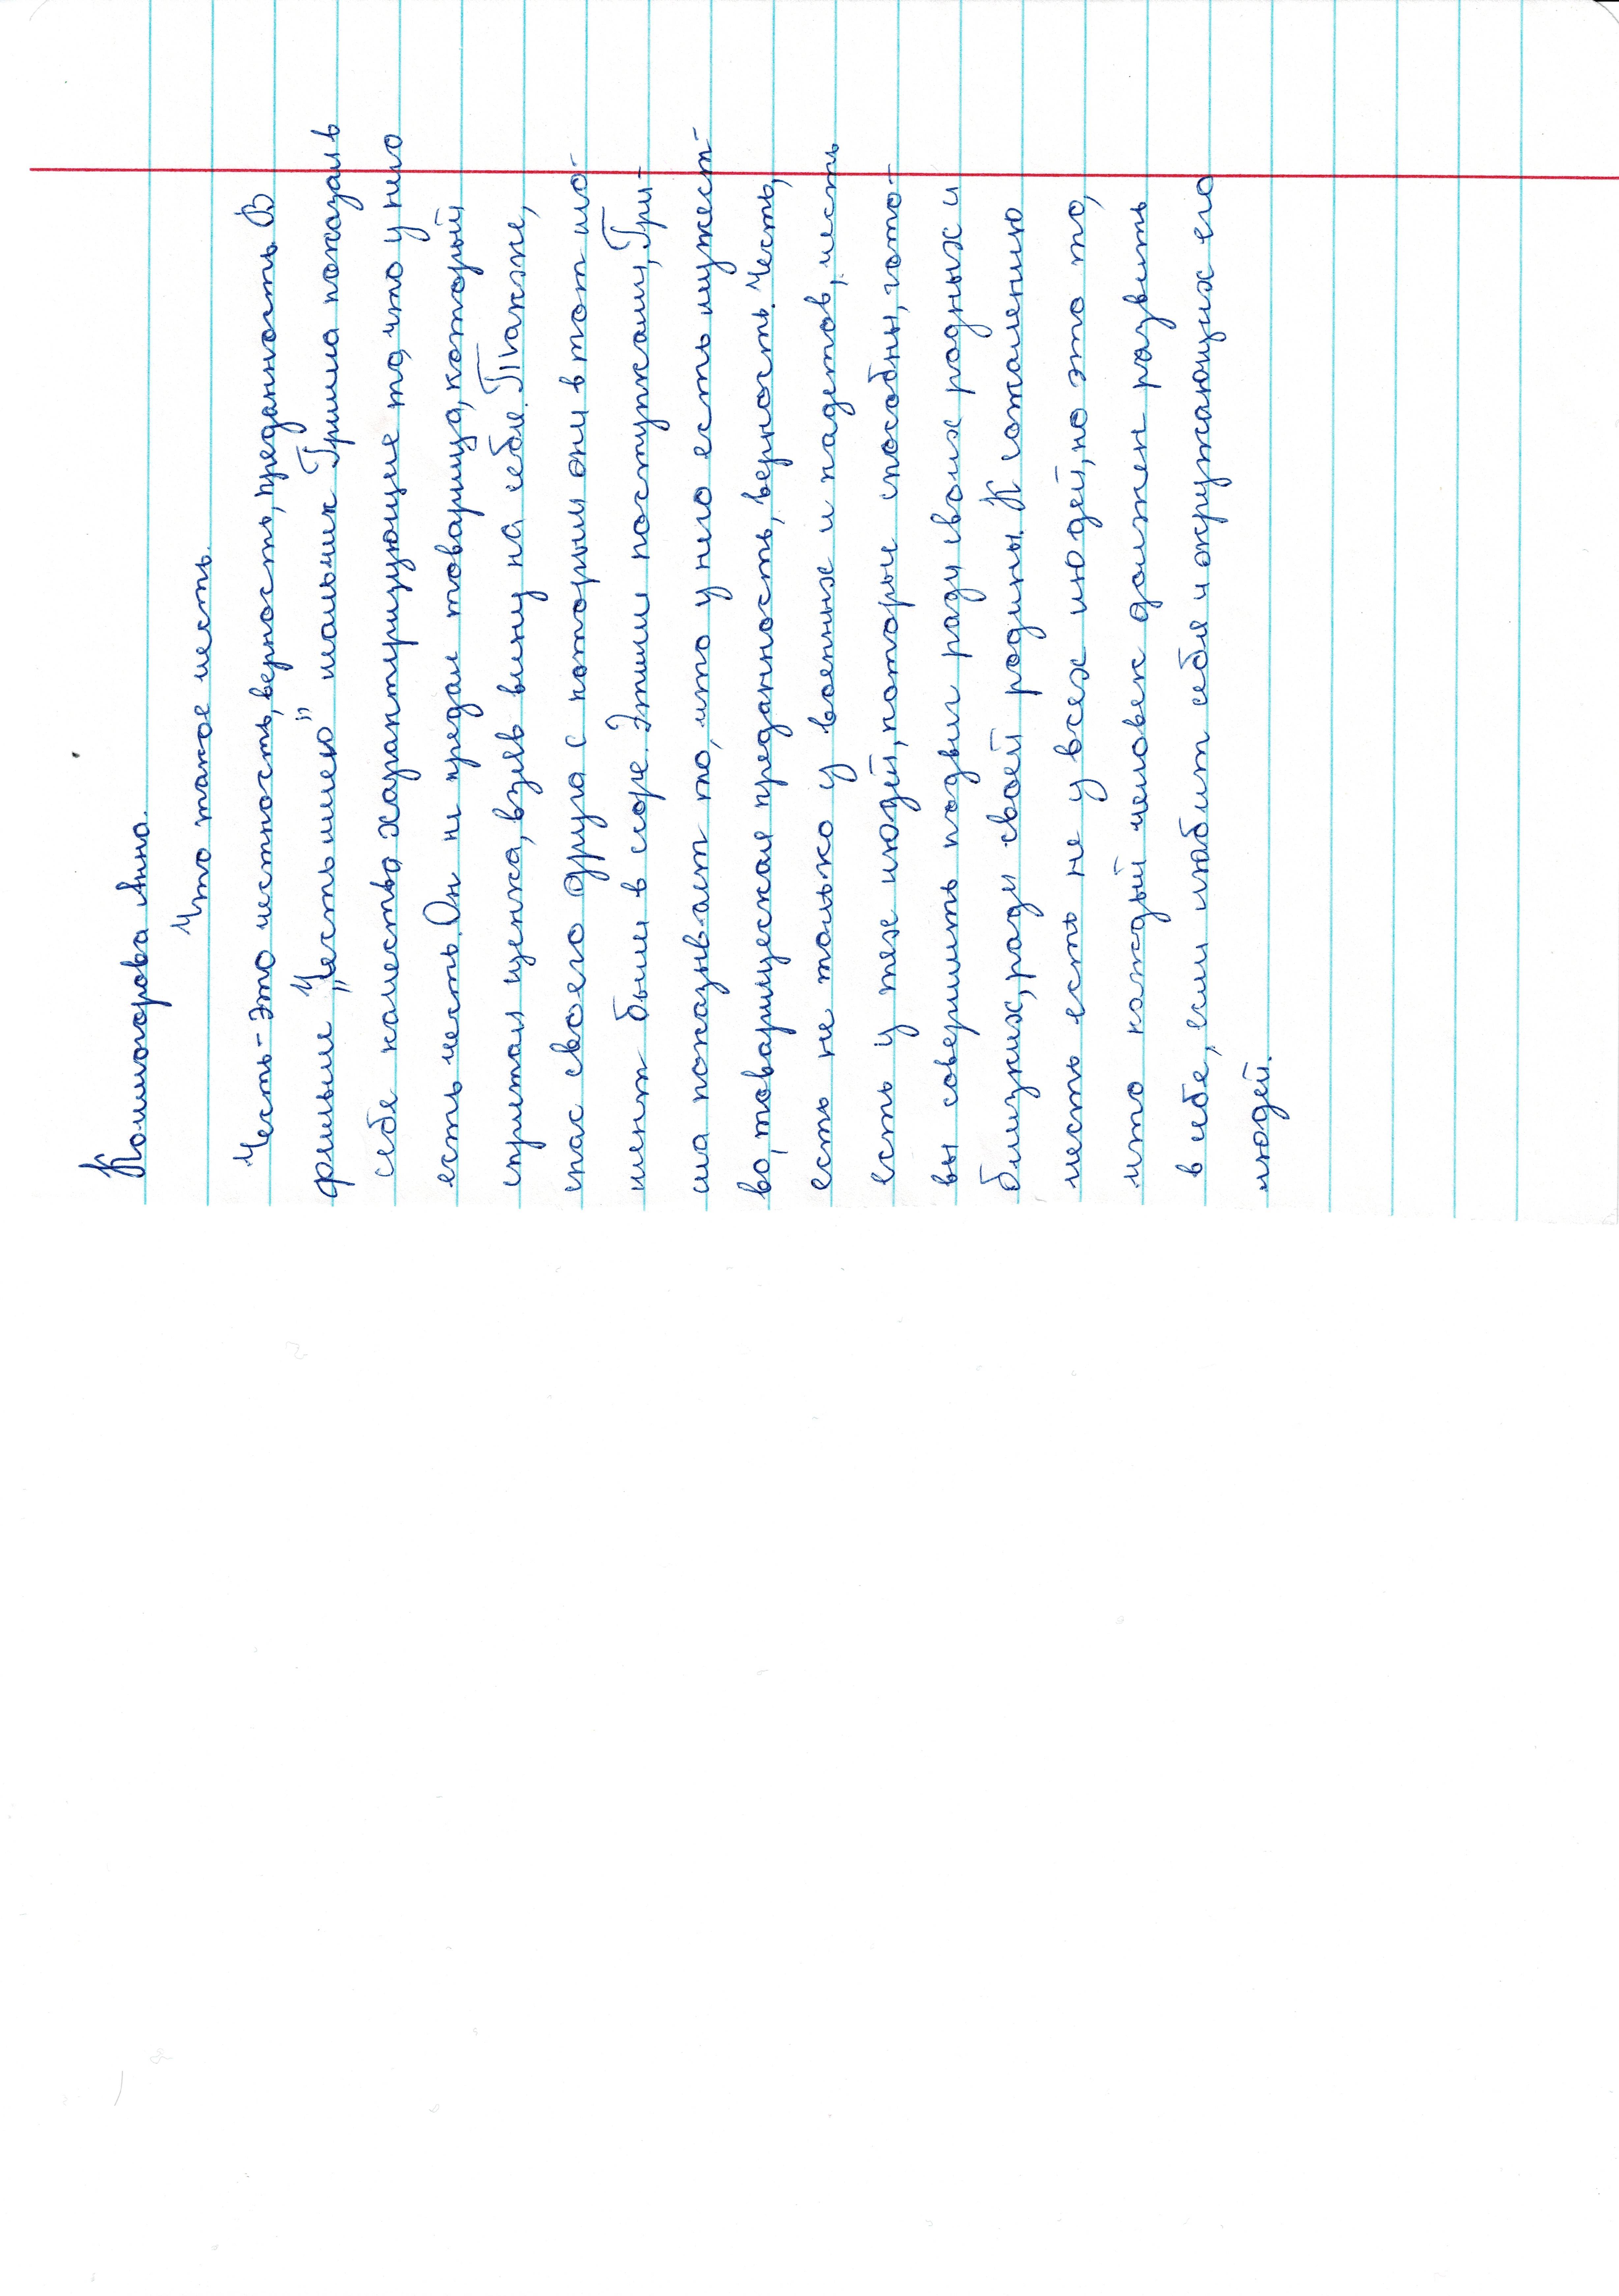 Колмогорова Анна.
Что такое честь.
Честь - это честность, верность, преданность. В
фильме „Честь имею" мальчик Гриша показал в
себе качества характеризующие то, что у него
есть честь. Он не предал товарища, который
спрятал щенка, взяв вину на себя. Также,
спас своего друга с которым они в тот мо-
мент были в ссоре. Этими поступками, Гри-
ша показывает то, что у него есть мужест-
во, товарищеская преданность, верность. Честь,
есть не только у военных и кадетов, честь
есть у тех людей, которые способны, гото-
вы совершить подвиг ради своих родных и
близких, ради своей родины. К сожалению
честь есть не у всех людей, но это то,
что каждый человек должен развить
в себе, если любит себя и окружающих его
людей.